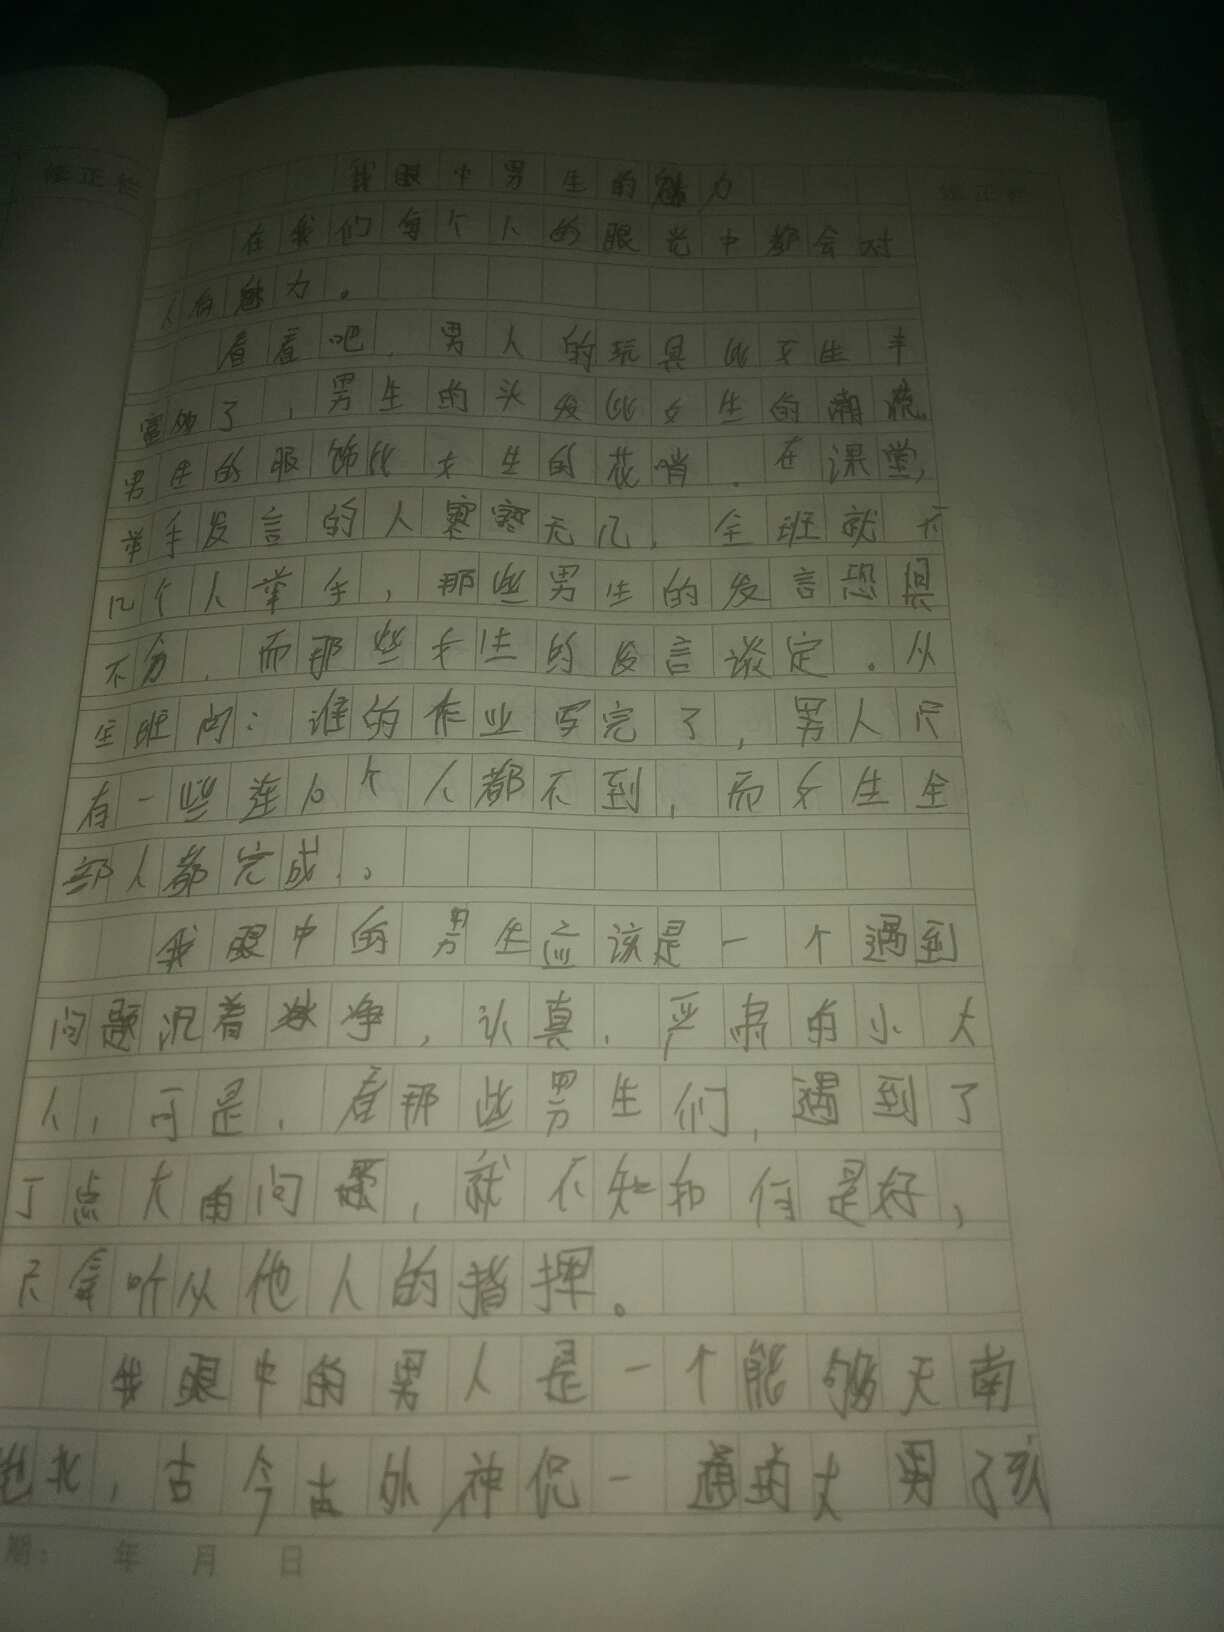 修正栏
修正栏
我眼中男生的魅力
在我们每个人的眼光中都会对
人有魅力。
看看吧,男人的玩具比女生丰
富多了,男生的头发比女生的潮流,
男生的服饰比女生的花哨.在课堂,
举手发言的人寥寥无几,全班就有
几个人举手,那些男生的发言恐惧
不分,而那些女生的发言谈定。从
全班问:谁的作业写完了,男人只
有一些连10个人都不到,而女生全
部人都完成.。
我眼中的男生应该是一个遇到
问题沉着冰净,认真.严肃的小大
人,可是,看那些男生们,遇到了
丁点大的问题,就不知如何是好,
只会听从他人的指挥。
我眼中的男人是一个能够天南
地北,古今古外神侃一通的大男子孩
期: 年 月 日